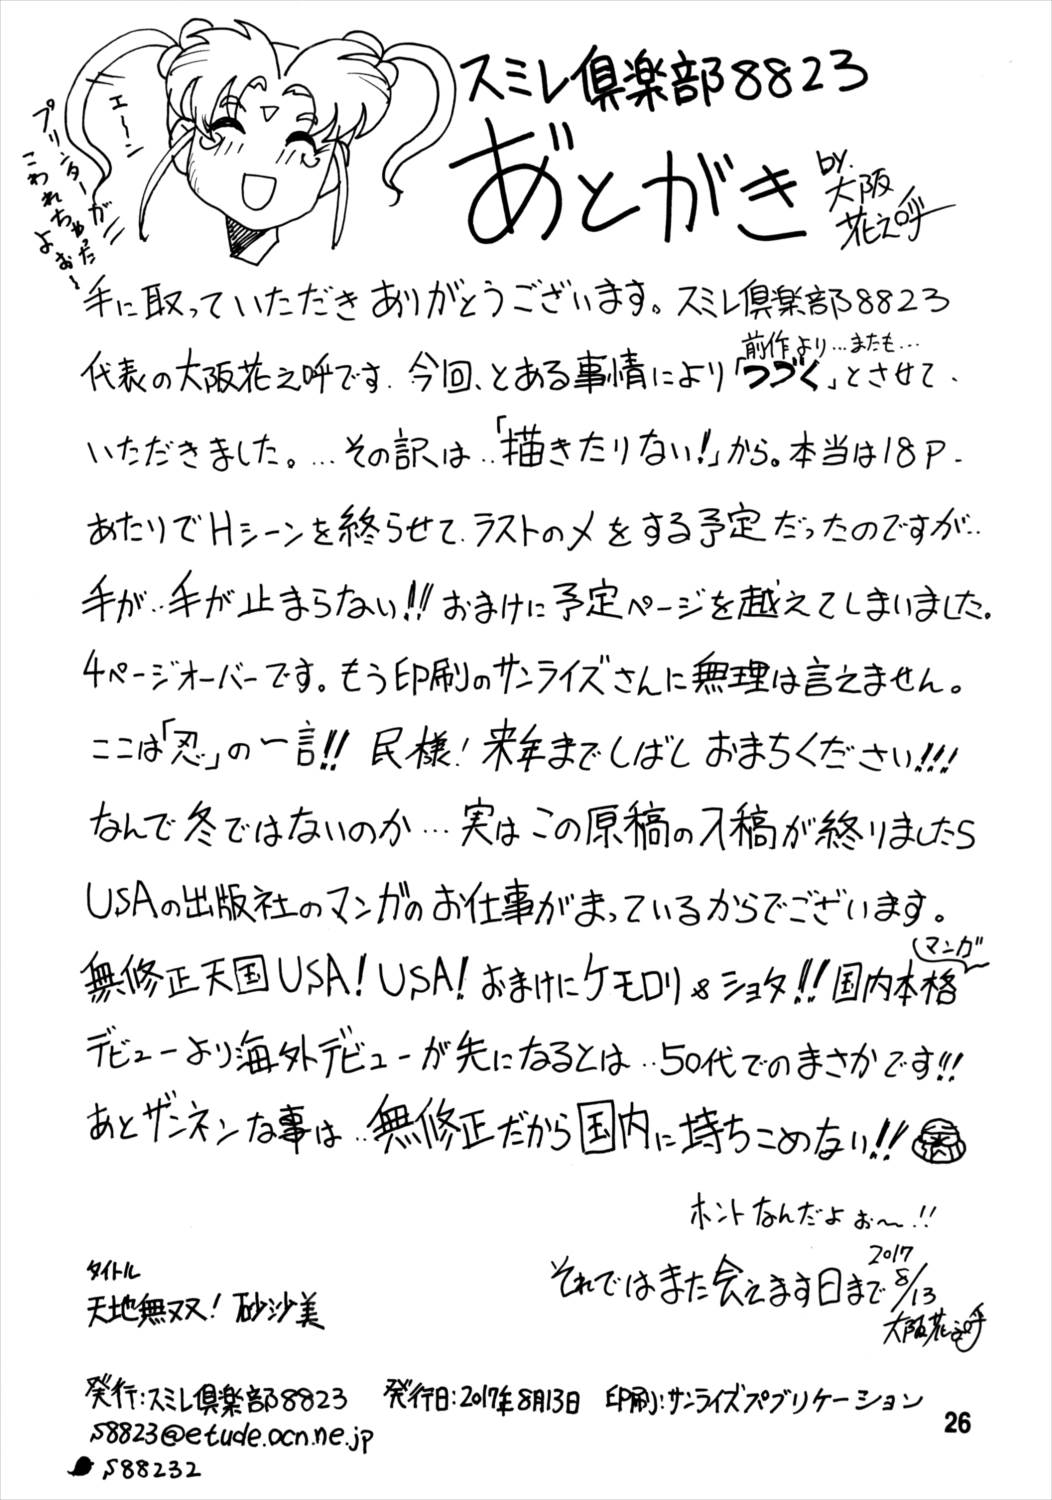 スミレ倶楽部8823
あとがき
by.大阪花之呼
エ〜ン
プリンターが
こわれちゃった
よぉ〜
手に取っていただきありがとうございます。スミレ倶楽部8823
前作より…またも…
代表の大阪花之呼です。今回、とある事情により「つづく」とさせて、
いただきました。…その訳は‥「描きたりない!」から。本当は18P-
あたりでHシーンを終らせて、ラストの〆をする予定だったのですが‥
手が‥手が止まらない!!おまけに予定ページを越えてしまいました。
4ページオーバーです。もう印刷のサンライズさんに無理は言えません。
ここは「忍」の一言!! 民様! 来年までしばし おまちください!!!
なんで冬ではないのか…実はこの原稿の入稿が終りましたら
USAの出版社のマンガのお仕事がまっているからでございます。
マンガ
無修正天国USA!USA!おまけにケモロリ&ショタ!!国内本格
デビューより海外デビューが先になるとは‥50代でのまさかです!!
あとザンネンな事は‥無修正だから国内に持ちこめない!!
ホントなんだよぉ〜!!
それではまた会えます日まで
2017
8/13
大阪花之呼
タイトル
天地無双! 砂沙美
発行:スミレ倶楽部8823 発行日:2017年8月13日 印刷:サンライズパブリケーション
S8823@etude.ocn.ne.jp
S88232
26